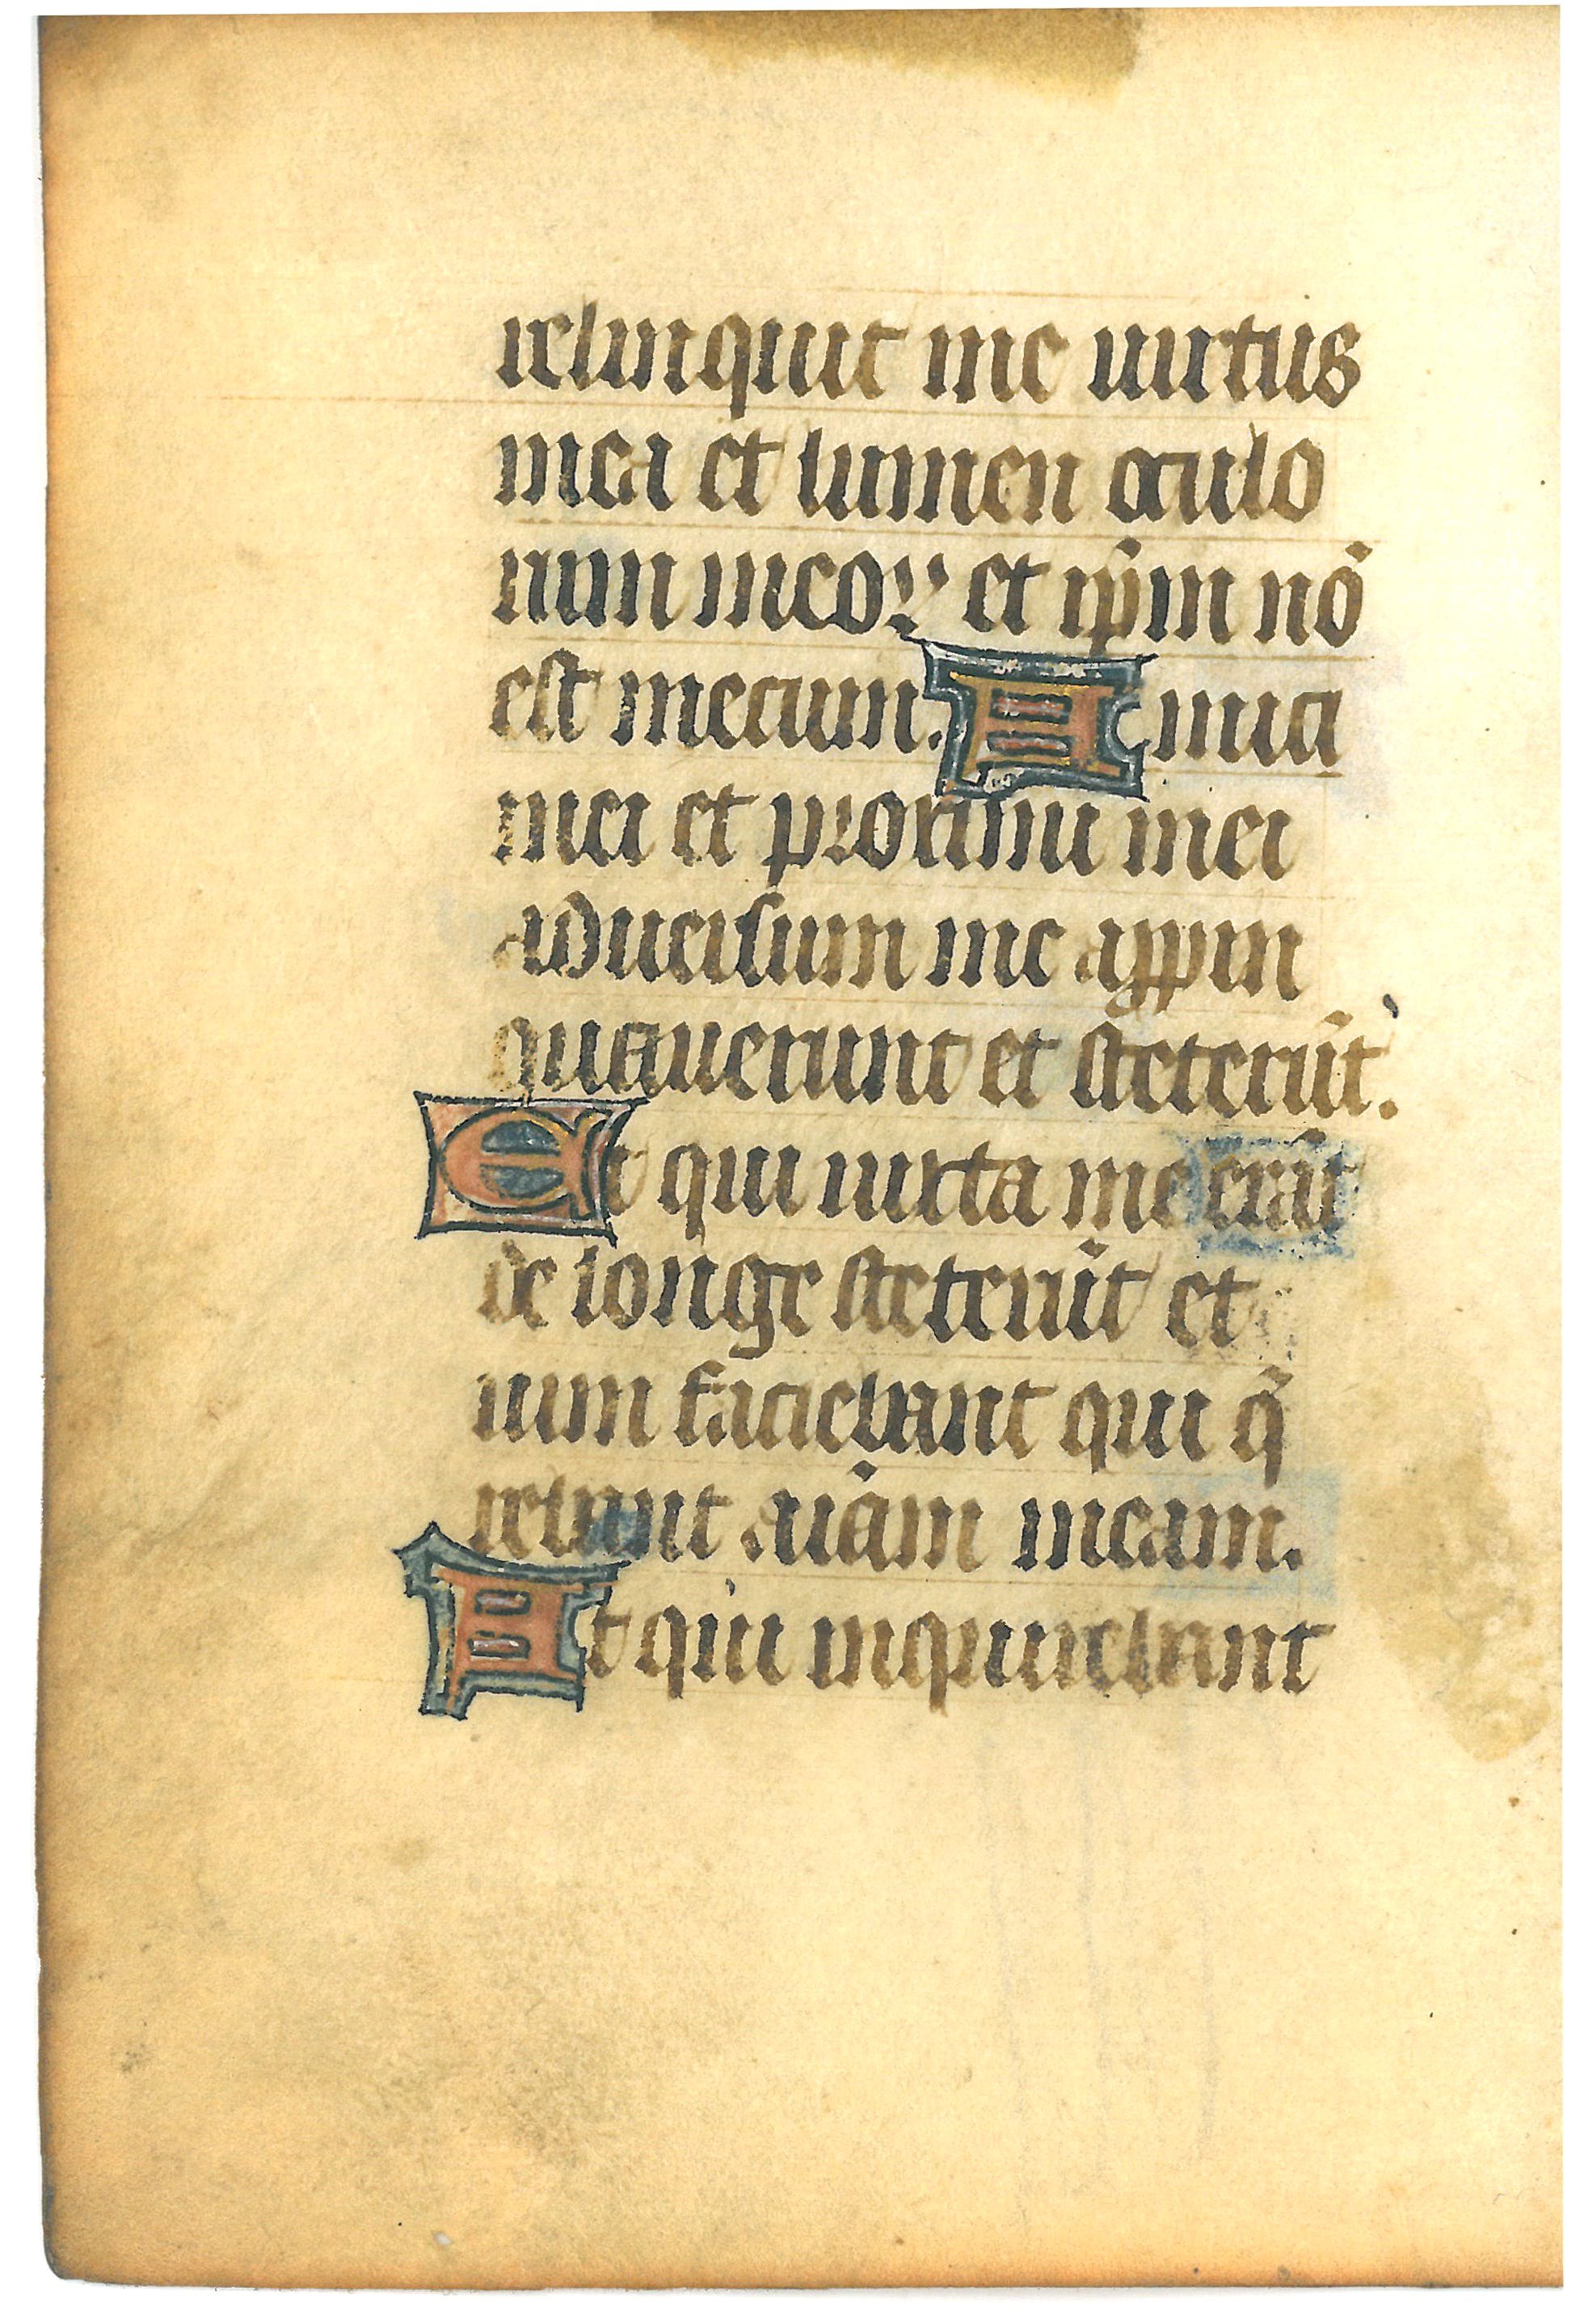 relinquit me uirtus
mea et lumen oculo
rum meoꝝ et ip̄m nō
est mecum. Amici
mei et proximi mei
aduersum me appin
quauerunt et steterūt.
Et qui iuxta me erāt
de longe steterūt et
uim faciebant qui q̄
rebant aīam meam.
Et qui inquirebant